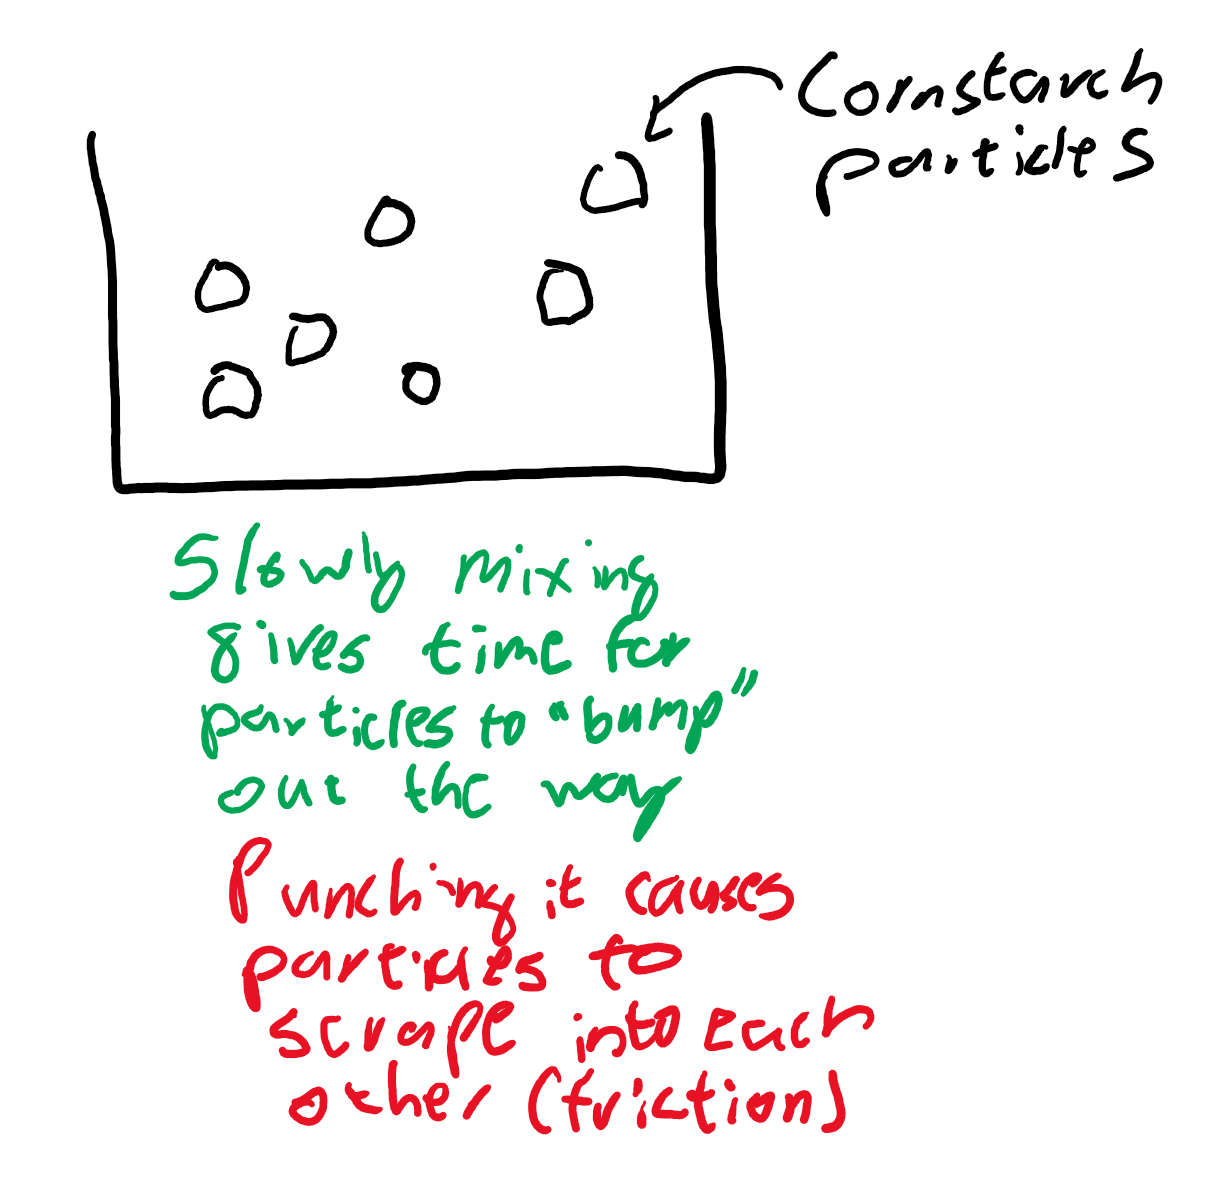 Cornstarch
particles
Slowly mixing
gives time for
particles to "bump"
out the way
Punching it causes
particles to
scrape into each
other (friction)